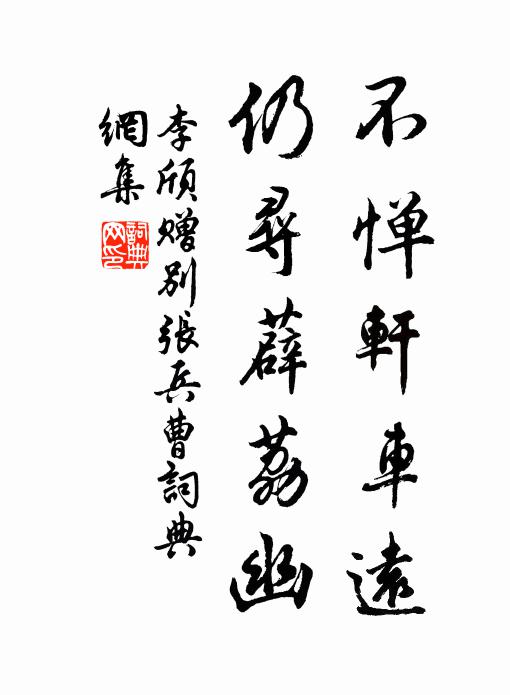 不惮軒車遠
仍尋薜荔幽
李頎贈別張兵曹詞典
網集
詞典
网印